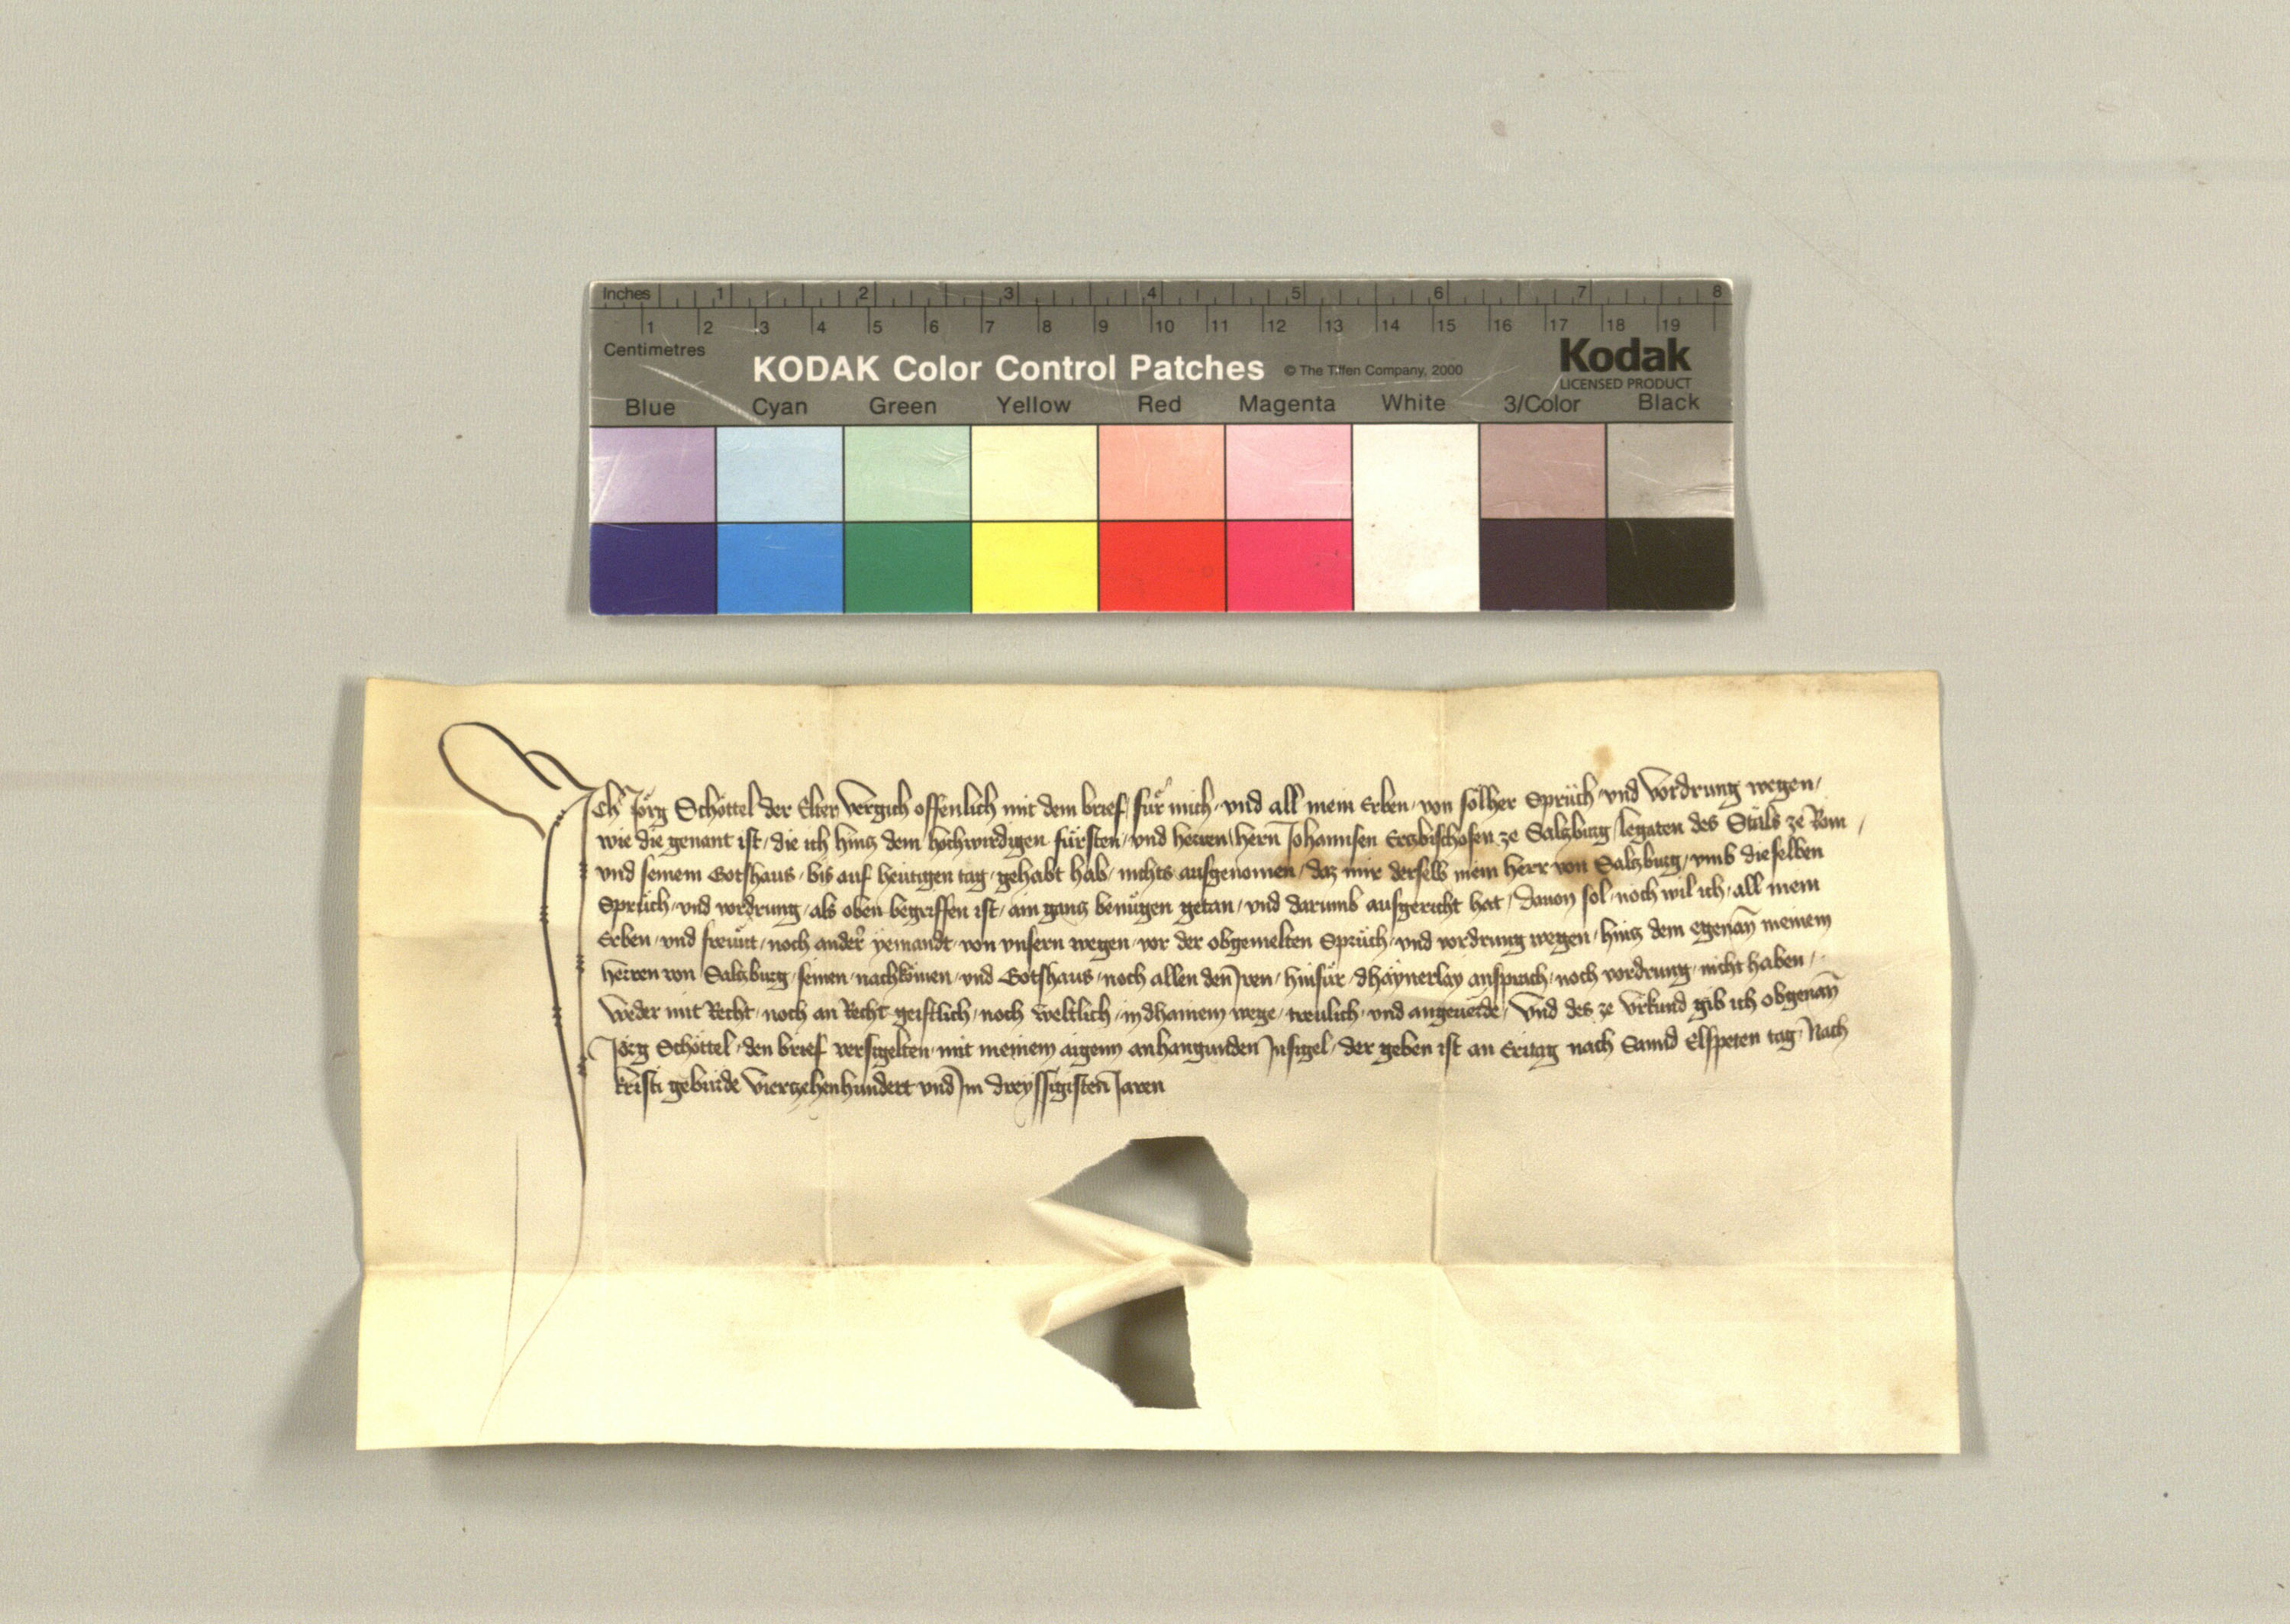 Inches 1 2 3 4 5 6 7 8
1 2 3 4 5 6 7 8 9 10 11 12 13 14 15 16 17 18 19
Centimetres
KODAK Color Control Patches © The Tiffen Company, 2000 Kodak
LICENSED PRODUCT
Blue Cyan Green Yellow Red Magenta White 3/Color Black
Ich Jörg Schöttel der Elter Vergich offenlich mit dem brief, für mich, vnd all mein Erben, von sölher Sprüch, vnd Vordrung wegen,
wie die genant ist, die ich hincz dem hochwirdigen fürsten, vnd herren, hern Johannsen Erczbischofen ze Salczburg, legaten des Stüls ze Rom,
vnd seinem Gotshaus, bis auf heutigen tag, gehabt hab, nichts ausgenomen, daz mir derselb mein herr von Salczburg, vmb dieselben
Sprüch, vnd vordrung, als oben begriffen ist, ain gancz benügen getan, vnd darumb ausgericht hat, Dauon sol, noch wil ich, all mein
Erben, vnd freunt, noch ander yemandt, von vnsern wegen, vor der obgemelten Sprüch, vnd vordrung wegen, hincz dem egenan̄ meinem
herren von Salczburg, seinen, nachkömen, vnd Gotshaus, noch allen den Iren, hinfür, dhaynerlay ansprach, noch vordrung, nicht haben,
Weder mit Recht, noch an Recht geistlich, noch weltlich, in dhainem wege, treulich, vnd angeuerde, Vnd des ze Vrkund gib ich obgenan̄
Jörg Schöttel, den brief versigelten, mit meinem aigenn anhangunden Insigel, der geben ist an Eritag nach Sannd Elspeten tag, Nach
kristi gebürde Vierzehenhundert vnd Im dreyssigisten Jaren